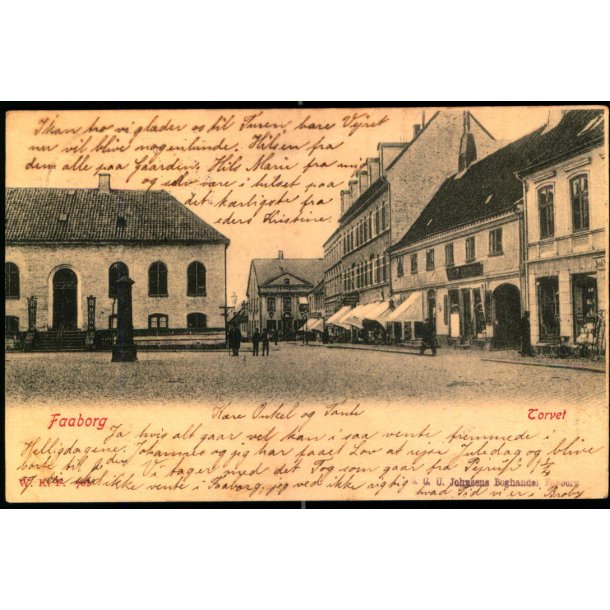 I kan tro vi glæder os til Turen, bare Vejret
ner vil blive nogenlunde. Hilsen fra
dem alle paa Gaarden. Hils Marie fra mig
og selv være i hilset paa
det kærligste fra
eders Kristine.
Faaborg
Torvet
Kære Onkel og Tante
Ja hvis alt gaar vel kan i saa vente fremmede i
Helligdagene. Johannes og jeg har faaet Lov at rejse Juledag og blive
borte til Vi tager med det Tog som gaar fra
ikke vente i Faaborg, jeg ved ikke rigtig
hvad Tid vi er i Broby
W. K. F.
G. U. Johnsens Boghandel Faaborg